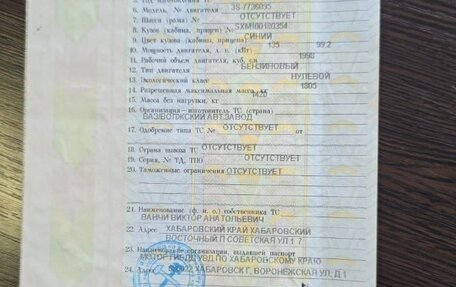 6. Модель, № двигателя 3S-7736095
7. Шасси (рама) № ОТСУТСТВУЕТ
8. Кузов (кабина, прицеп) № SXM100180354
9. Цвет кузова (кабины, прицепа) СИНИЙ
10. Мощность двигателя, л. с. (кВт) 135 99.2
11. Рабочий объем двигателя, куб. см 1998
12. Тип двигателя БЕНЗИНОВЫЙ
13. Экологический класс НУЛЕВОЙ
14. Разрешенная максимальная масса, кг 1805
15. Масса без нагрузки, кг 1420
16. Организация—изготовитель ТС (страна)
ВАЗ/ВОЛЖСКИЙ АВТ.ЗАВОД
17. Одобрение типа ТС № ОТСУТСТВУЕТ от
18. Страна вывоза ТС ОТСУТСТВУЕТ
19. Серия, № ТД, ТПО ОТСУТСТВУЕТ
20. Таможенные ограничения ОТСУТСТВУЕТ
21. Наименование (ф. и. о.) собственника ТС
ВАНЧИ ВИКТОР АНАТОЛЬЕВИЧ
22. Адрес ХАБАРОВСКИЙ КРАЙ ХАБАРОВСКИЙ
ВОСТОЧНЫЙ П СОВЕТСКАЯ УЛ 1 7
23. Наименование организации, выдавшей паспорт
МОТОР ГИБДД УВД ПО ХАБАРОВСКОМУ КРАЮ
24. Адрес ХАБАРОВСК Г, ВОРОНЕЖСКАЯ УЛ, Д 1